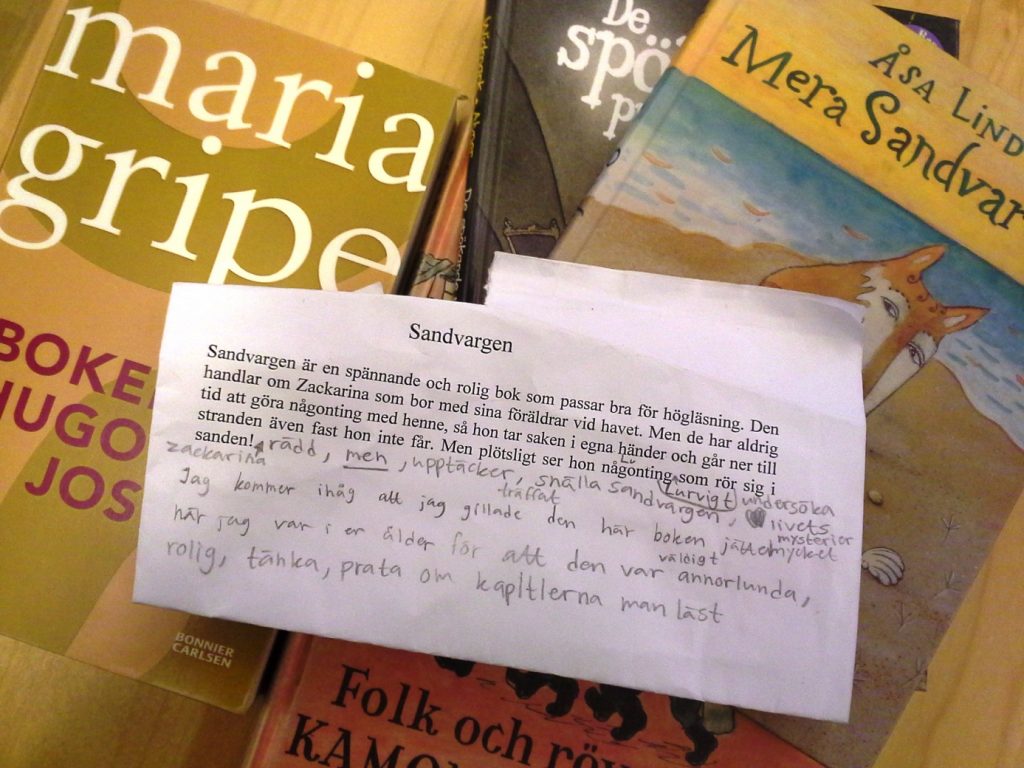 maria
gripe
BOKE
HUGO
JOS
BONNIER
CARLSEN
De
spö
p
ÅSA LIND
Mera Sandvar
Sandvargen
Sandvargen är en spännande och rolig bok som passar bra för högläsning. Den
handlar om Zackarina som bor med sina föräldrar vid havet. Men de har aldrig
tid att göra någonting med henne, så hon tar saken i egna händer och går ner till
stranden även fast hon inte får. Men plötsligt ser hon någonting som rör sig i
sanden!
rädd, men, upptäcker, snälla sandvargen, Lurvigt undersöka
zackarina träffat livets
mysterier
Jag kommer ihåg att jag gillade den här boken jättemycket
när jag var i er ålder för att den var väldigt annorlunda,
rolig, tänka, prata om kapltlerna man läst
Folk och röv
KAMO